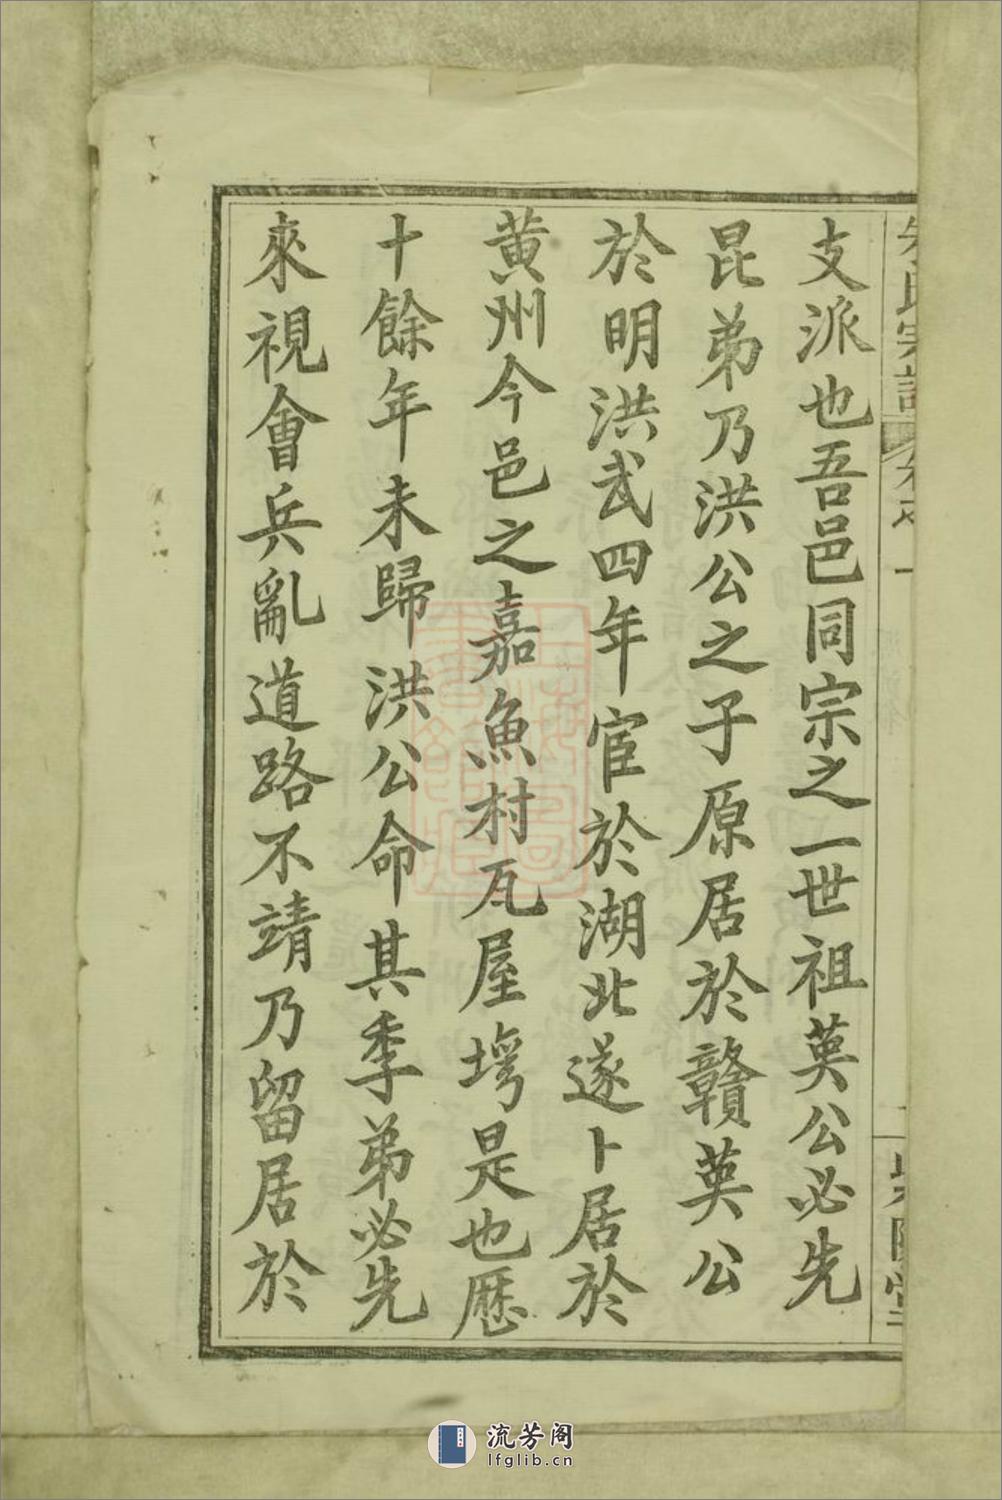 支派也吾邑同宗之一世祖英公必先
昆弟乃洪公之子原居於贛英公
於明洪武四年宦於湖北遂卜居於
黄州今邑之嘉魚村瓦屋塆是也歷
十餘年未歸洪公命其季弟必先
來視會兵亂道路不靖乃留居於
流芳阁
lfglib.cn